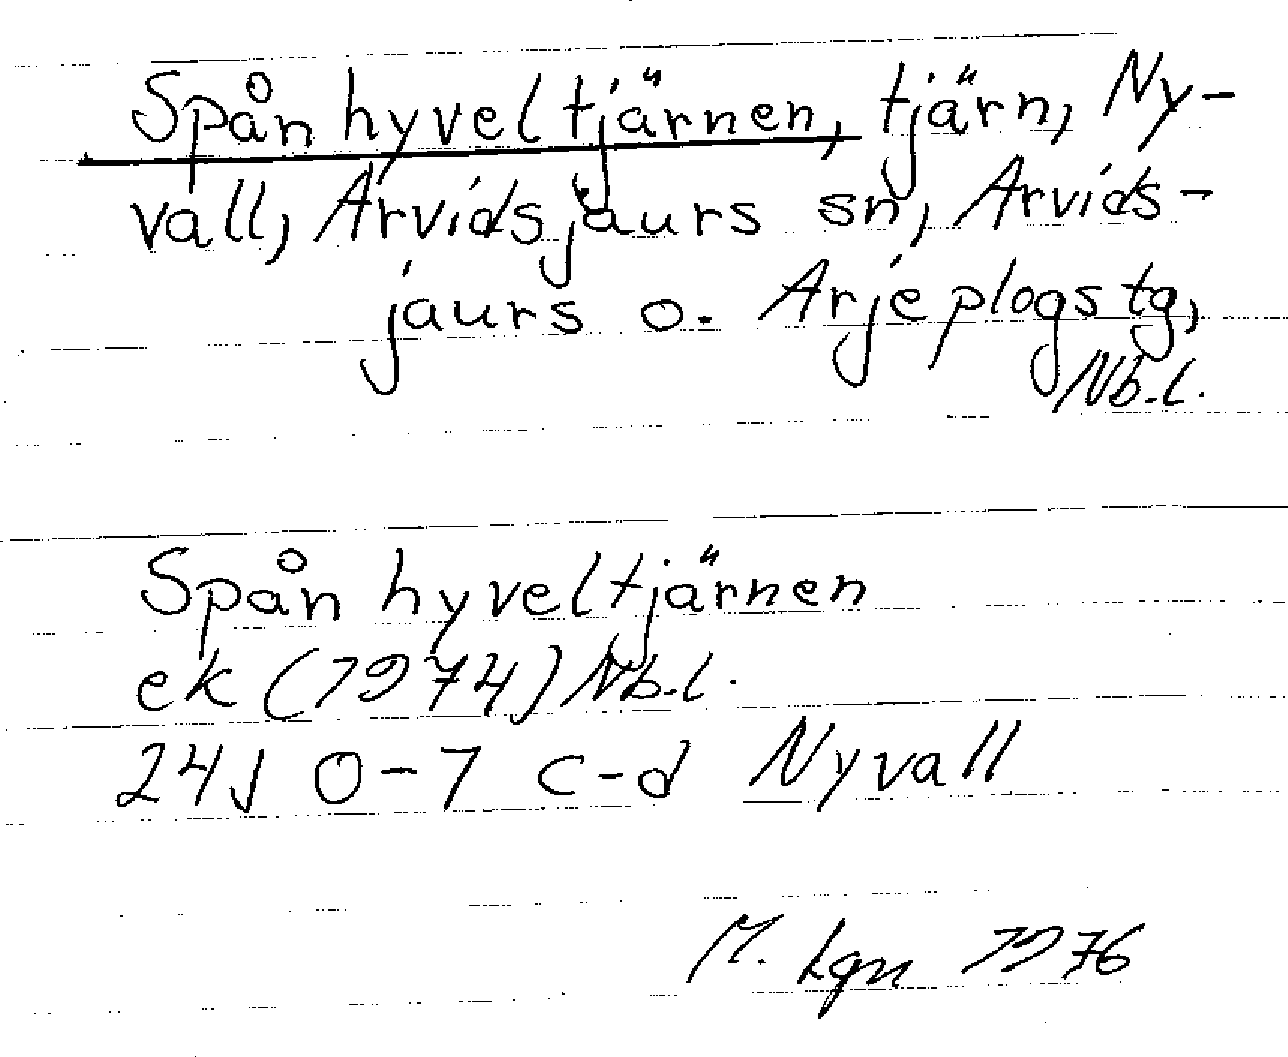 Spånhyveltjärnen, tjärn, Ny-
vall, Arvidsjaurs sn, Arvids-
jaurs o. Arjeplogs tg,
Nb.l.
Spånhyveltjärnen
ek (1974) Nb.l.
24J 0-7 c-d Nyvall
M. Lgn 1976